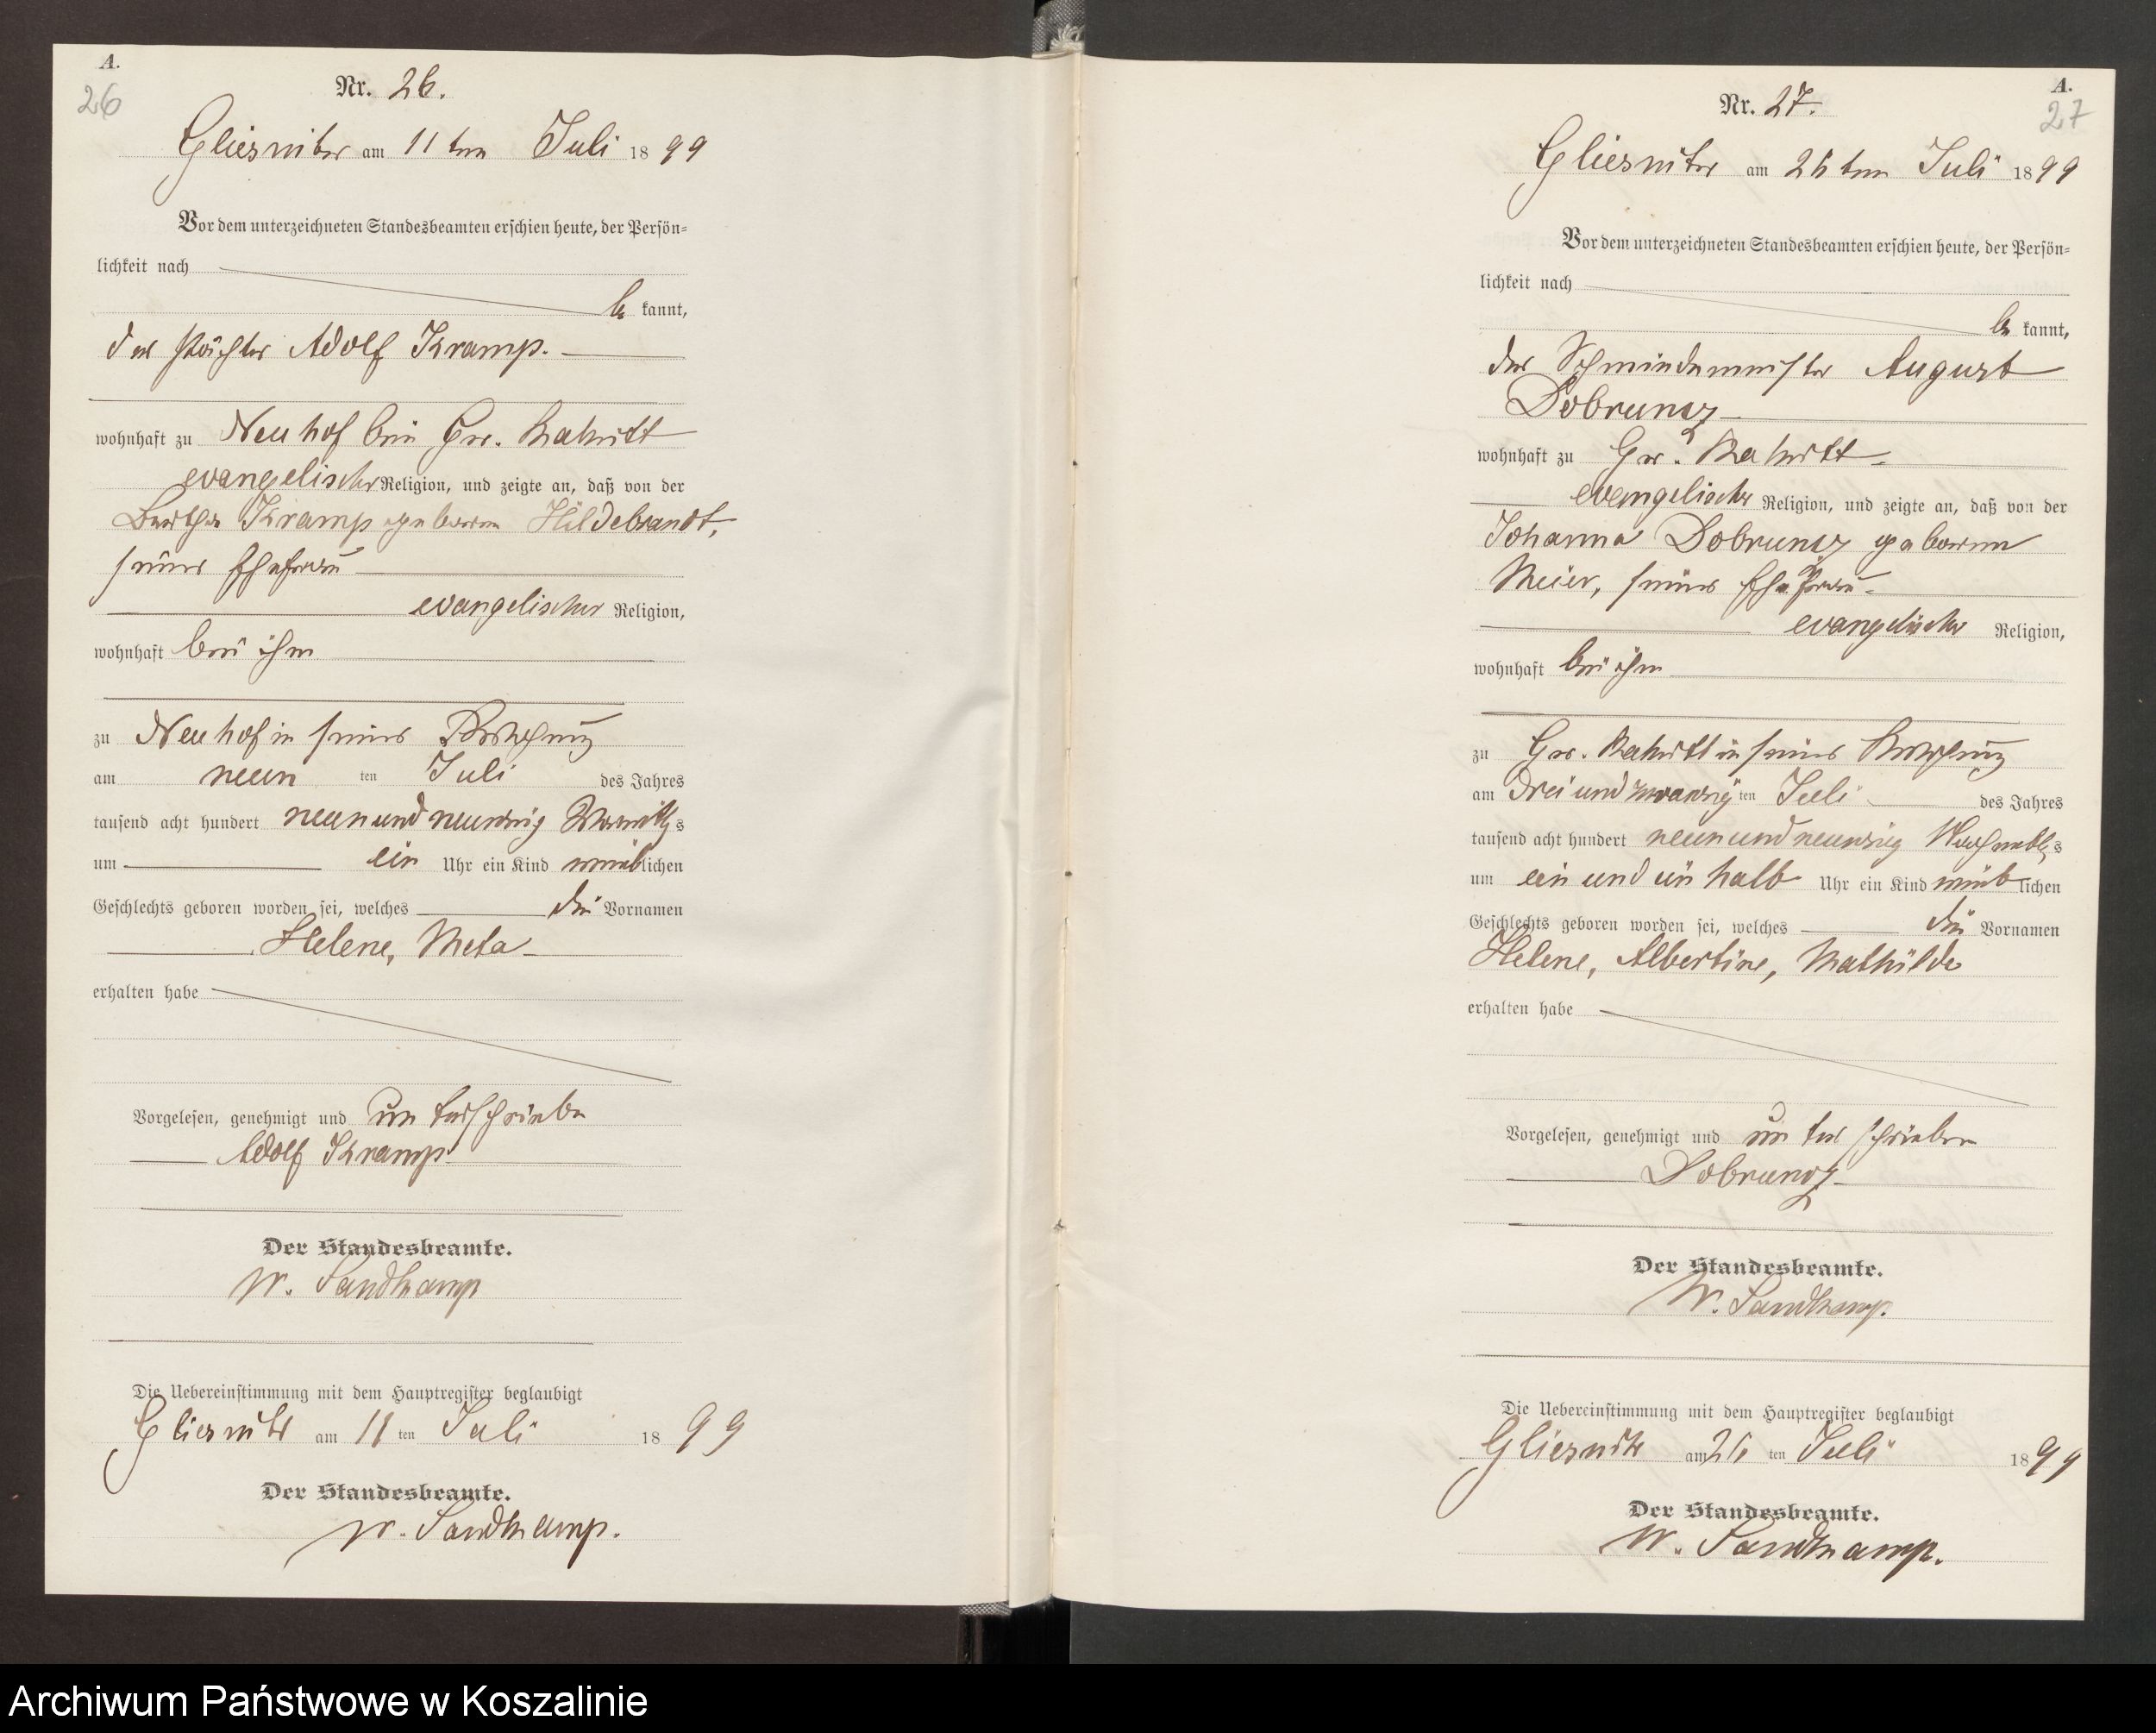 A.
26
Nr. 26.
Gliesnitz am 11ten Juli 1899
Vor dem unterzeichneten Standesbeamten erschien heute, der Persön=
lichkeit nach
be kannt,
der Pächter Adolf Kramp.
wohnhaft zu Neuhof bei Gr. Rakitt
evangelischer Religion, und zeigte an, daß von der
Bertha Kramp geborene Hildebrandt,
seiner Ehefrau
evangelischer Religion,
wohnhaft bei ihm
zu Neuhof in seiner Wohnung
am neun ten Juli des Jahres
tausend acht hundert neunundneunzig Vormittags
um ein Uhr ein Kind weiblichen
Geschlechts geboren worden sei, welches die Vornamen
Helene, Meta
erhalten habe
Vorgelesen, genehmigt und unterschrieben
Adolf Kramp
Der Standesbeamte.
W. Sandkamp
Die Uebereinstimmung mit dem Hauptregister beglaubigt
Gliesnitz am 11 ten Juli 1899
Der Standesbeamte.
W. Sandkamp.
A.
27
Nr. 27.
Gliesnitz am 26ten Juli 1899
Vor dem unterzeichneten Standesbeamten erschien heute, der Persön=
lichkeit nach
be kannt,
der Schmiedemeister August
Dobrunz
wohnhaft zu Gr. Rakitt
evangelischer Religion, und zeigte an, daß von der
Johanna Dobrunz geborene
Meier, seiner Ehefrau
evangelischer Religion,
wohnhaft bei ihm
zu Gr. Rakitt in seiner Wohnung
am dreiundzwanzig ten Juli des Jahres
tausend acht hundert neunundneunzig Nachmittags
um ein und ein halb Uhr ein Kind weiblichen
Geschlechts geboren worden sei, welches die Vornamen
Helene, Albertine, Mathilde
erhalten habe
Vorgelesen, genehmigt und unterschrieben
Dobrunz
Der Standesbeamte.
W. Sandkamp.
Die Uebereinstimmung mit dem Hauptregister beglaubigt
Gliesnitz am 26 ten Juli 1899
Der Standesbeamte.
W. Sandkamp.
Archiwum Państwowe w Koszalinie